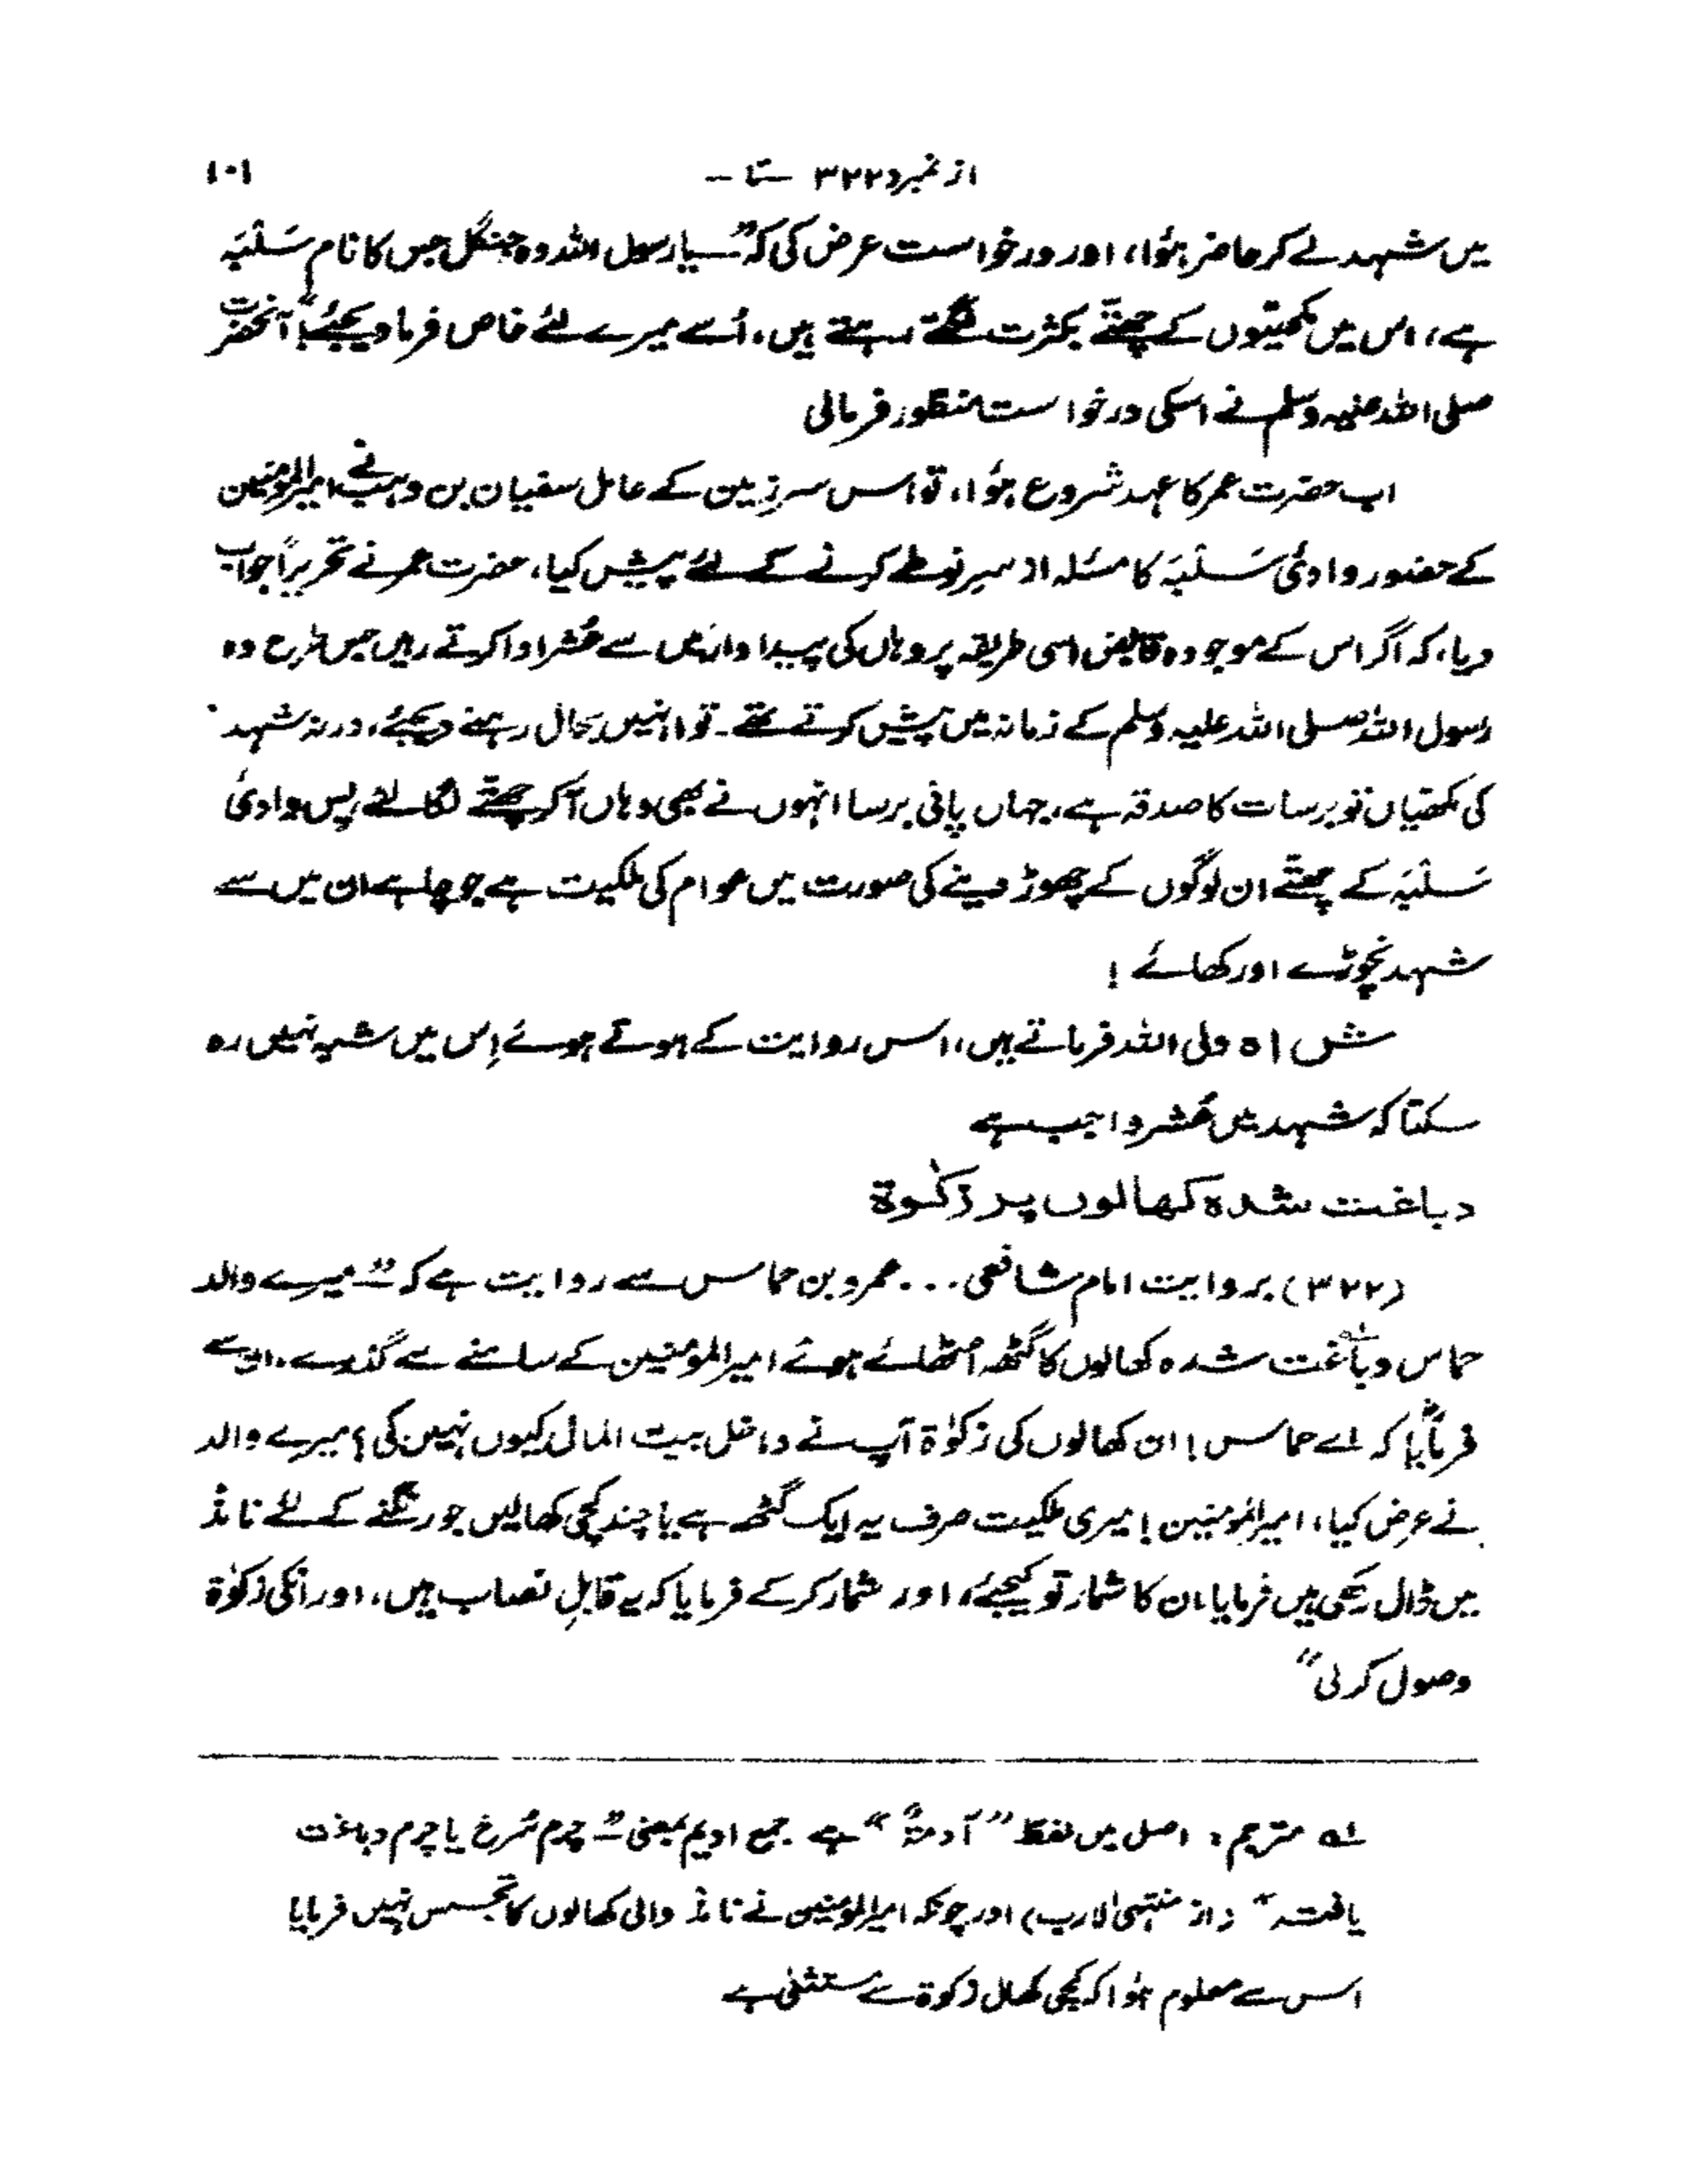 از نمبر ۳۲۲ تا — ۱۰۱
میں شہد لے کر حاضر ہؤا، اور درخواست عرض کی کہ "یا رسول اللہ وہ جنگل جس کا نام سَلَبَہ
ہے، اس میں مکھیوں کے چھتّے بکثرت لگتے رہتے ہیں، اُسے میرے لئے خاص فرما دیجئے"! آنحضرت
صلی اللہ علیہ وسلم نے اسکی درخواست منظور فرمالی
اب حضرت عمر کا عہد شروع ہؤا، تو اس سرزمین کے عامل سفیان بن وہب نے امیرالمؤمنین
کے حضور وادیٔ سَلَبَہ کا مسئلہ از سرِنو طے کرنے کے لئے پیش کیا، حضرت عمر نے تحریراً جواب
دیا، کہ اگر اس کے موجودہ قابض اسی طریقہ پر وہاں کی پیداوار میں سے عُشر ادا کرتے رہیں جس طرح وہ
رسول اللہ صلی اللہ علیہ وسلم کے زمانہ میں پیش کرتے تھے۔ تو انہیں بحال رہنے دیجئے، ورنہ شہد
کی مکھیاں تو برسات کا صدقہ ہے، جہاں پانی برسا انہوں نے بھی وہاں آکر چھتّے لگا لئے، پس وادیٔ
سَلَبَہ کے چھتّے ان لوگوں کے چھوڑ دینے کی صورت میں عوام کی ملکیت ہے جو چاہے ان میں سے
شہد نچوڑے اور کھائے !
ش ا ہ ولی اللہ فرماتے ہیں، اس روایت کے ہوتے ہوئے اِس میں شبہ نہیں رہ
سکتا کہ شہد میں عُشر واجب ہے
دباغت شدہ کھالوں پر زکوٰۃ
(۳۲۲) بروایت امام شافعی ... عمرو بن حماس سے روایت ہے کہ "میرے والد
حماس دباغت شدہ کھالوں کا گٹھہ اُٹھائے ہوئے امیرالمؤمنین کے سامنے سے گذرے، ان سے
فرمایا کہ اے حماس! ان کھالوں کی زکوٰۃ آپ نے داخل بیت المال کیوں نہیں کی؟ میرے والد
نے عرض کیا، امیرالمؤمنین! میری ملکیت صرف یہ ایک گٹھہ ہے یا چند کچی کھالیں جو رنگنے کے لئے ناند
میں ڈال رکھی ہیں فرمایا ان کا شمار تو کیجئے، اور شمار کر کے فرمایا کہ یہ قابلِ نصاب ہیں، اور انکی زکوٰۃ
وصول کر لی"
لہ مترجم: اصل میں لفظ "آدمۃً" ہے جمع ادیم بمعنی "چرم سُرخ یا چرم دباغت
یافتہ" (از منتہی الارب) اور چونکہ امیرالمؤمنین نے ناند والی کھالوں کا تجسس نہیں فرمایا
اس سے معلوم ہؤا کہ کچی کھال زکوٰۃ سے مستثنیٰ ہے